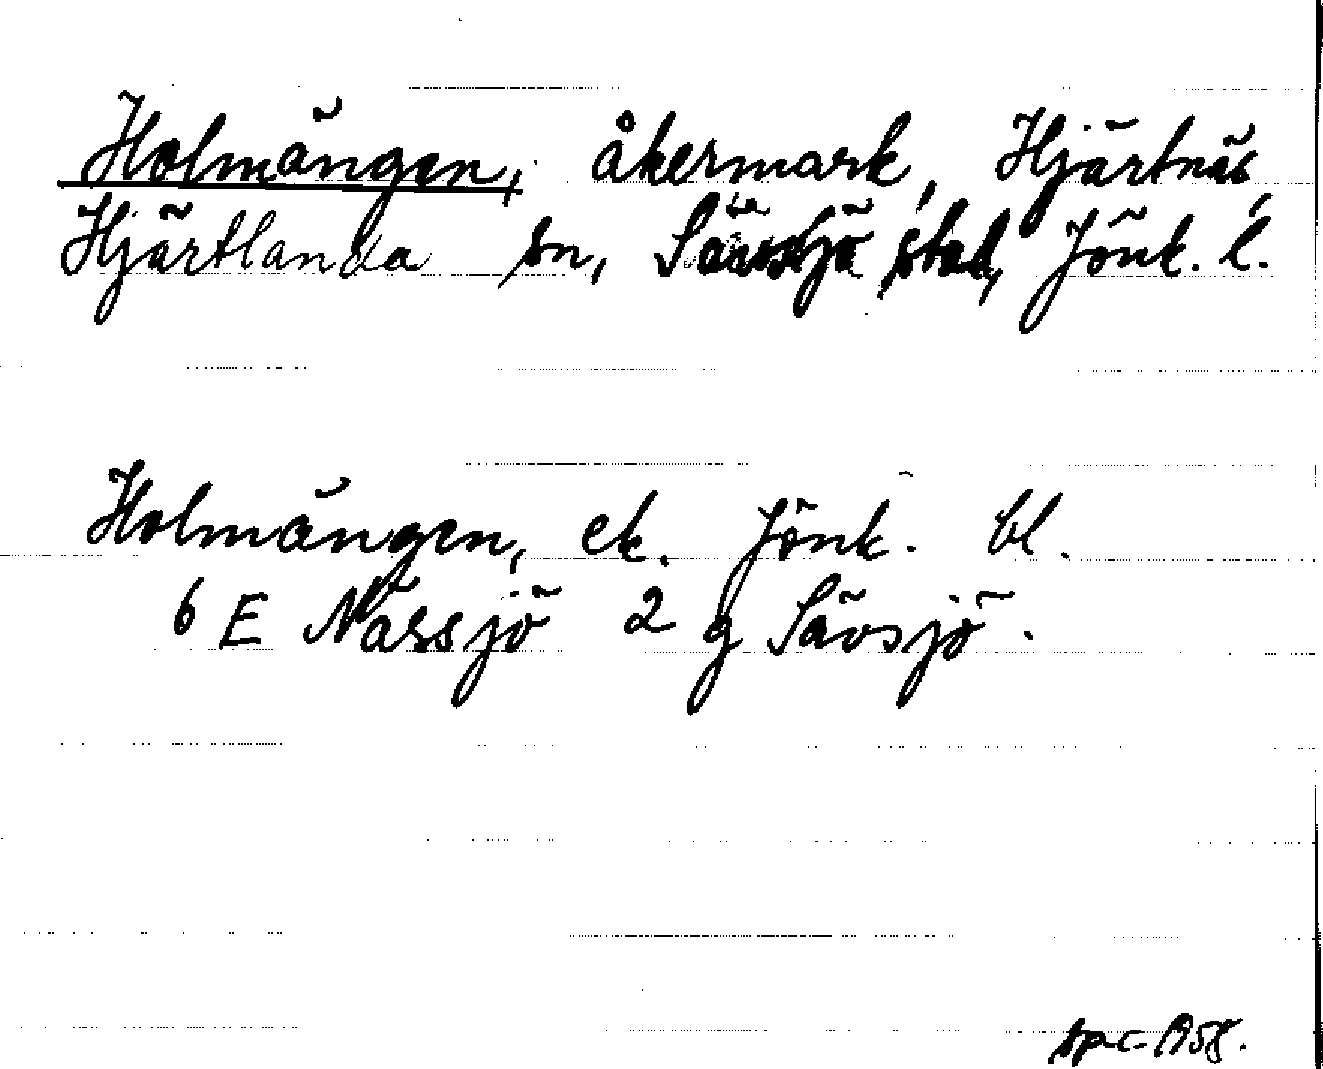 Holmängen, åkermark, Hjärtnäs,
Hjärtlanda sn, Sävsjö stad, Jönk. l.
Holmängen, ek. Jönk. bl.
6 E Nässjö 2 g Sävsjö.
1958.